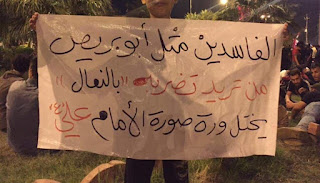 الفاسدين مثل أبو بريص
من تريد تضربه "بالنعال"
يختل ورة صورة الأمام علي